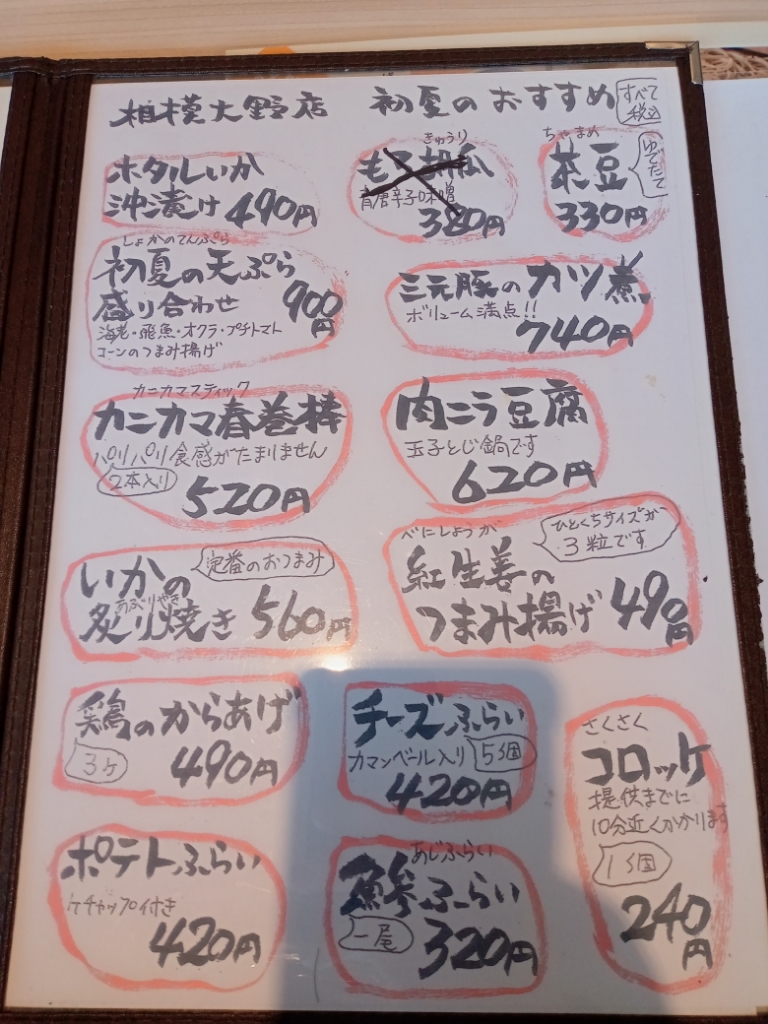 相模大野店 初夏のおすすめ すべて税込
ホタルいか
沖漬け 490円
きゅうり
もろ胡瓜
青唐辛子味噌
380円
ちゃまめ
茶豆 ゆでたて
330円
しょかのてんぷら
初夏の天ぷら
盛り合わせ 900円
海老・飛魚・オクラ・プチトマト
コーンのつまみ揚げ
三元豚のカツ煮
ボリューム満点!!
740円
カニカマスティック
カニカマ春巻棒
パリパリ食感がたまりません
2本入り 520円
肉ニラ豆腐
玉子とじ鍋です
620円
いかの 定番のおつまみ
あぶりやき
炙り焼き 560円
べにしょうが ひとくちサイズが
3粒です
紅生姜の
つまみ揚げ 490円
鶏のからあげ
3ヶ 490円
チーズふらい
カマンベール入り 5個
420円
さくさく
コロッケ
提供までに
10分近くかかります
1個
240円
ポテトふらい
ケチャップ付き
420円
あじふらい
鯵ふらい
一尾 320円